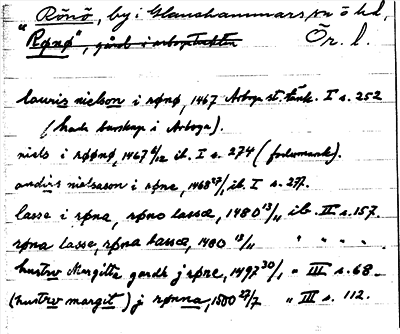 Rönö, by i Glanshammars sn ö hd,
"Rønø", gård i arbogatrakten Ör. l.
lauris nielson i rønø, 1467 Arboga st. tänk. I s. 252
(hade burskap i Arboga).
niels i røønø, 1467 6/12 ib. I s. 274 (fodermark).
anders nielsason i røne, 1468 27/1 ib. I s. 277.
lasse i røna, røno lassæ, 1480 13/11 ib. II s. 157.
røna lasse, røna lassæ, 1480 13/11 " " " "
hustrv Margitta gardh j røne, 1497 30/1 " III s. 68
(hustrv margit) j rønna, 1500 27/7 " III s. 112.